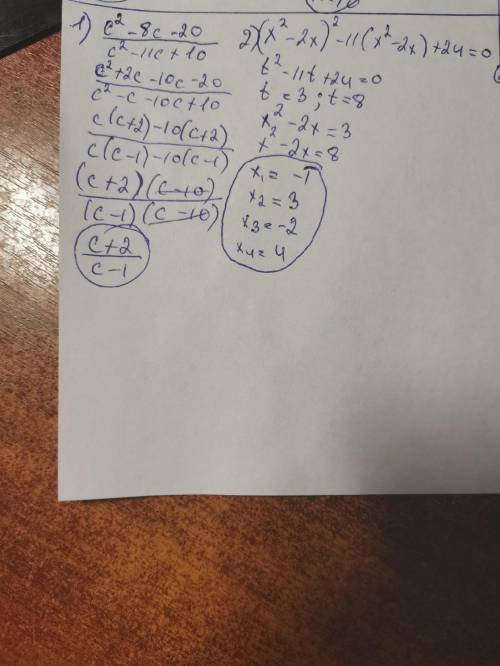 1) (c² - 8c - 20)/(c² - 11c + 10)
(c² + 2c - 10c - 20)/(c² - c - 10c + 10)
(c(c+2) - 10(c+2))/(c(c-1) - 10(c-1))
((c+2)(c-10))/((c-1)(c-10))
(c+2)/(c-1)
2) (x² - 2x)² - 11(x² - 2x) + 24 = 0
t² - 11t + 24 = 0
t = 3; t = 8
x² - 2x = 3
x² - 2x = 8
x₁ = -1
x₂ = 3
x₃ = -2
x₄ = 4